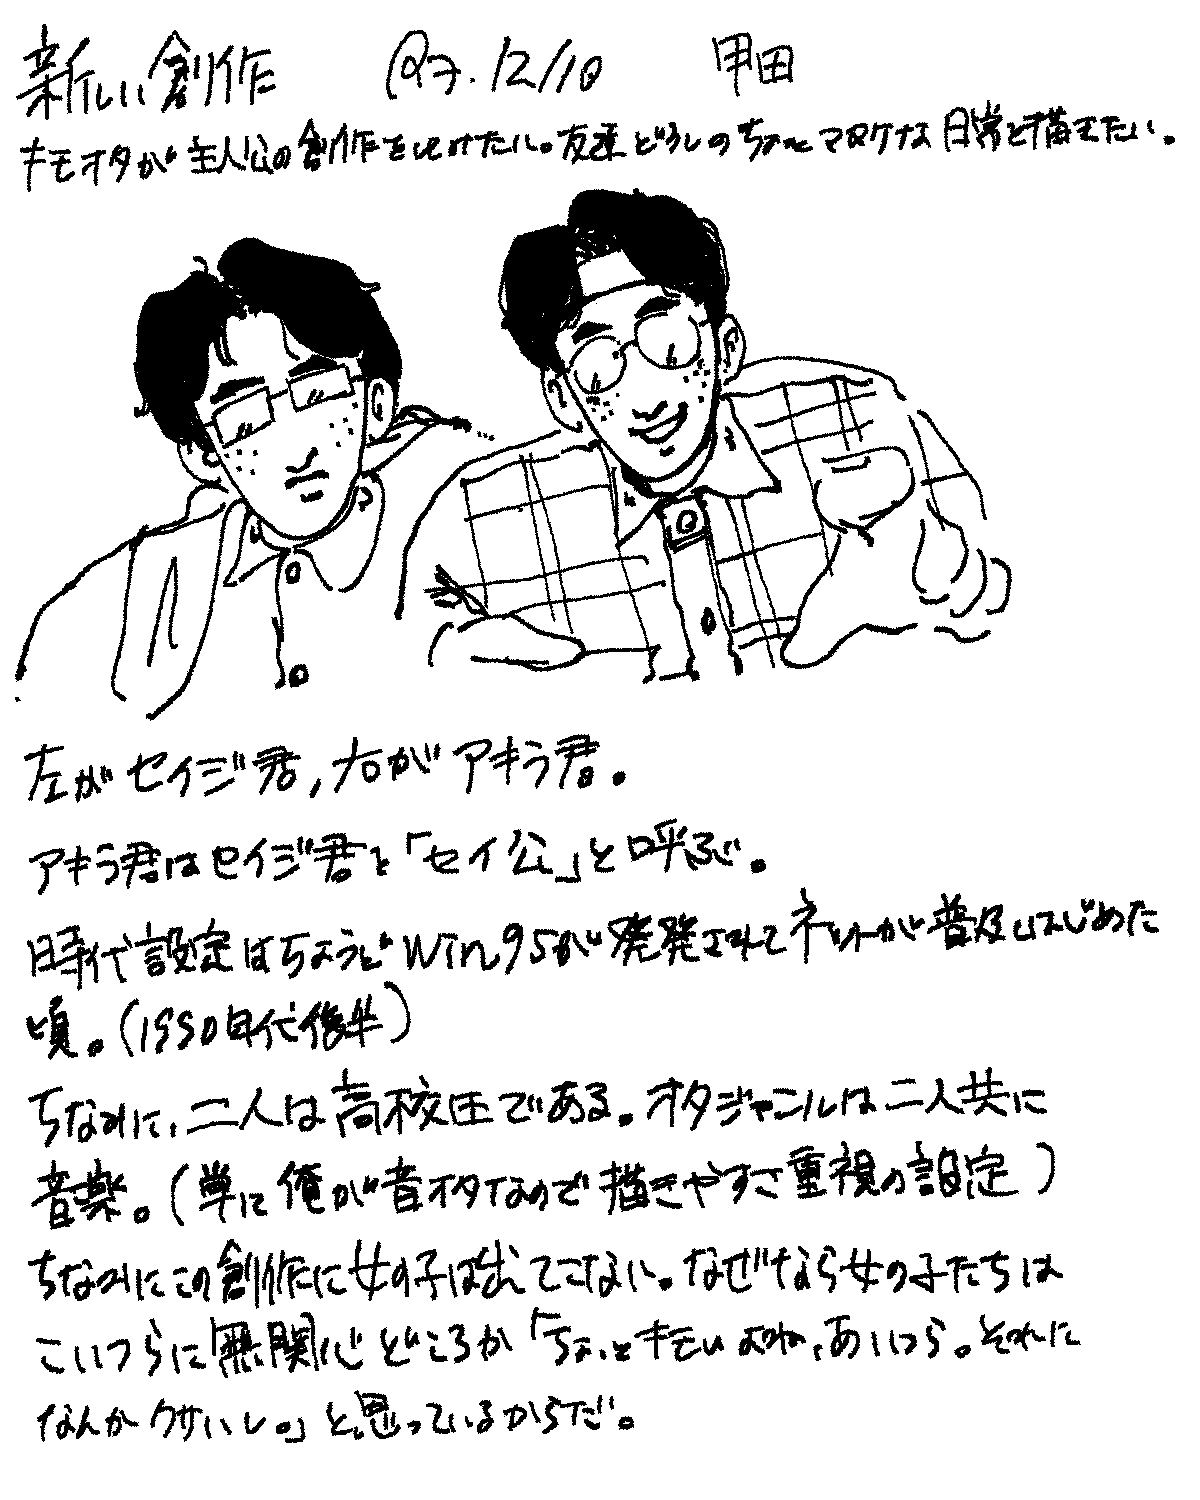 新しい創作 R7.12/10 甲田
キモオタが主人公の創作をしてみたい。友達どうしのちょっとマヌケな日常を描きたい。
左がセイジ君,右がアキラ君。
アキラ君はセイジ君を「セイ公」と呼ぶ。
時代設定はちょうどWin95が発売されてネットが普及しはじめた
頃。(1990年代後半)
ちなみに、二人は高校生である。オタジャンルは二人共に
音楽。(単に俺が音オタなので描きやすさ重視の設定)
ちなみにこの創作に女の子は出てこない。なぜなら女の子たちは
こいつらに無関心どころか「ちょっとキモいよね、あいつら。それに
なんかクサいし。」と思っているからだ。